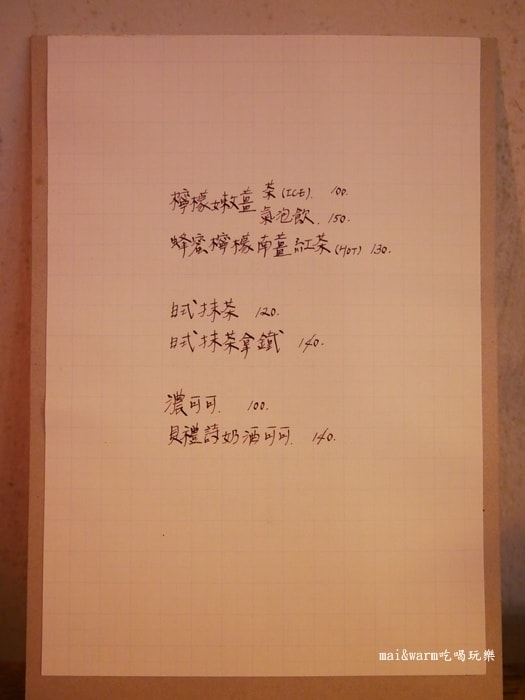 檸檬嫩薑 茶(ICE). 100.
氣泡飲. 150.
蜂蜜檸檬南薑紅茶(HOT) 130.
日式抹茶 120.
日式抹茶拿鐵 140.
濃可可. 100.
貝禮詩奶酒可可. 140.
mai&warm吃喝玩樂